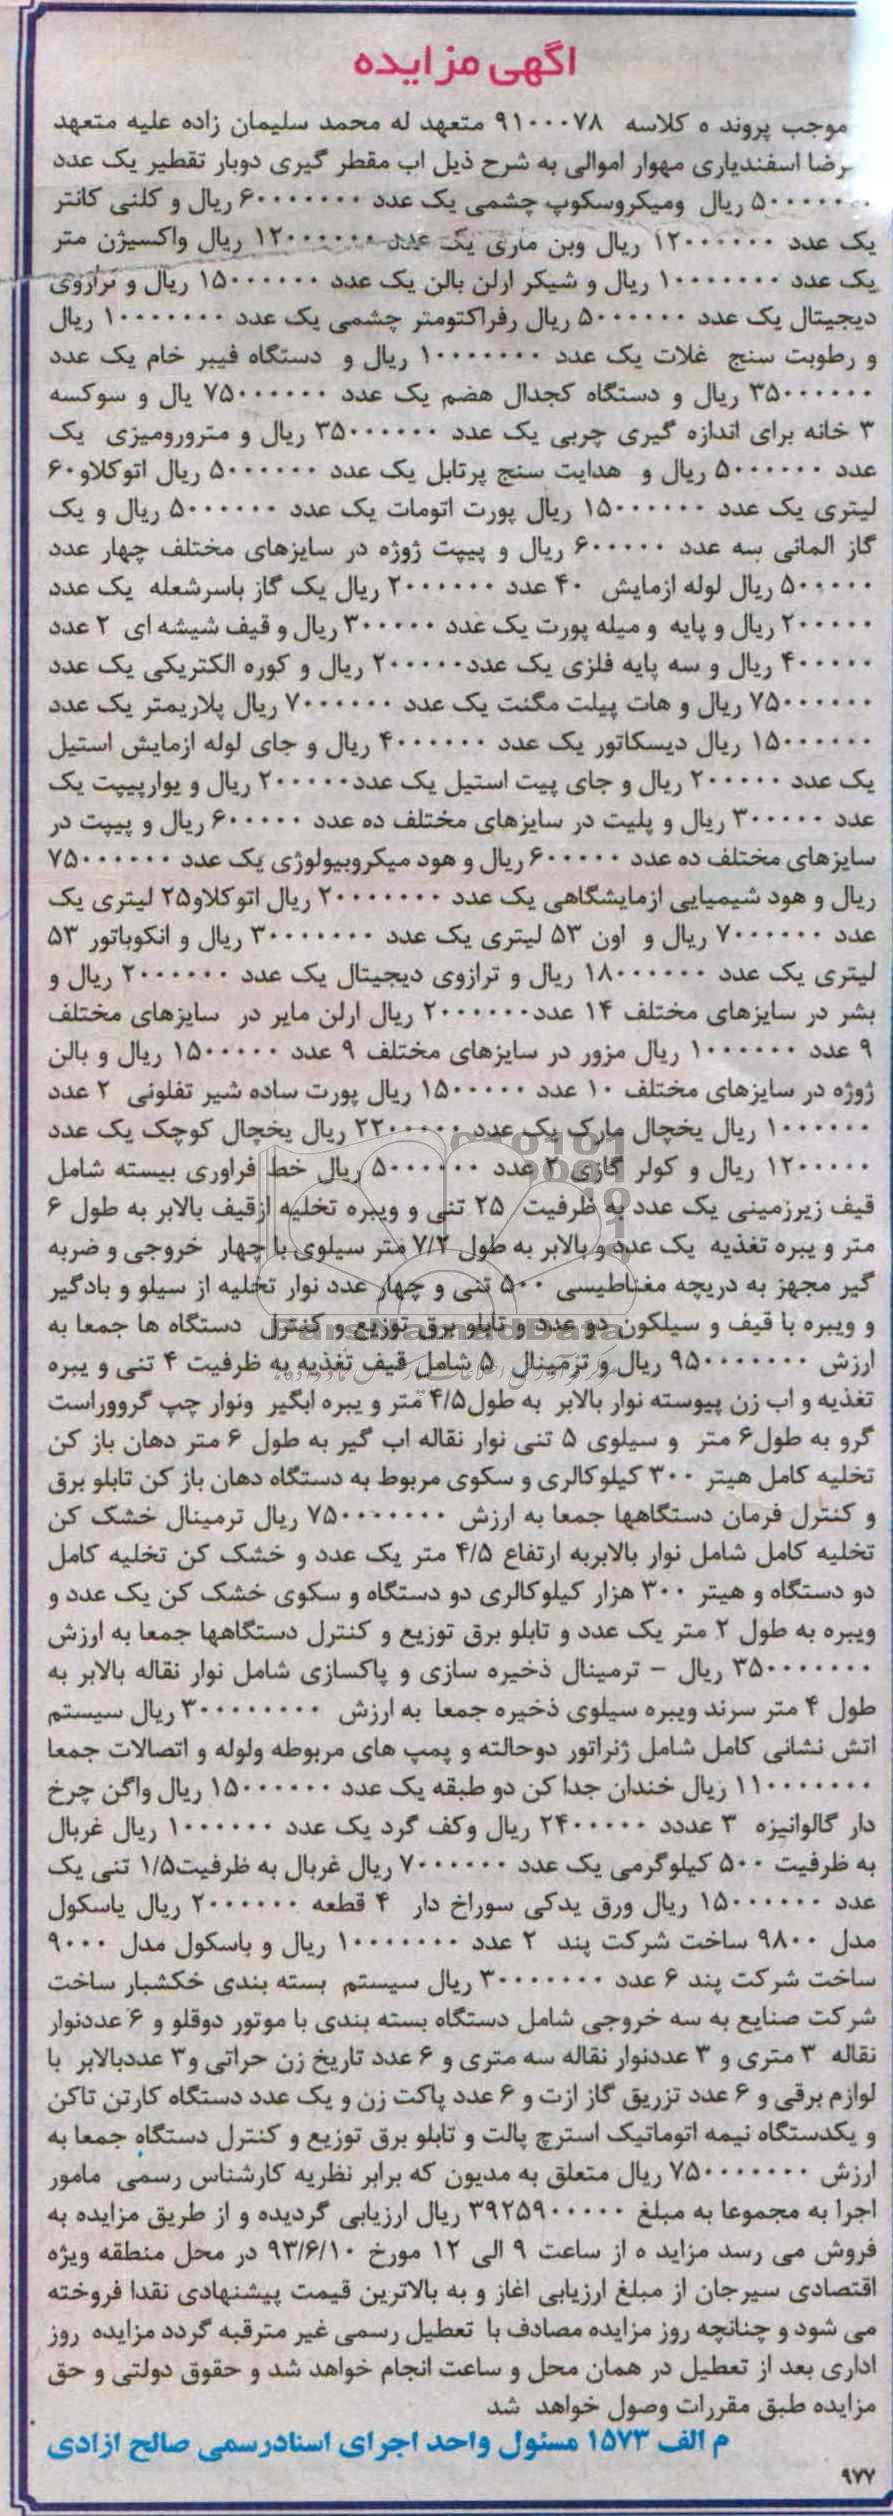 اگهی مزایده
موجب پروند ه کلاسه ۹۱۰۰۰۷۸ متعهد له محمد سلیمان زاده علیه متعهد
رضا اسفندیاری مهوار اموالی به شرح ذیل اب مقطر گیری دوبار تقطیر یک عدد
ریال ومیکروسکوپ چشمی یک عدد ۶۰۰۰۰۰۰۰ ریال و کلنی کانتر
یک عدد ۱۲۰۰۰۰۰۰ ریال وبن ماری یک عدد ۱۲۰۰۰۰۰۰ ریال واکسیژن متر
یک عدد ۱۰۰۰۰۰۰۰ ریال و شیکر ارلن بالن یک عدد ۱۵۰۰۰۰۰۰ ریال و ترازوی
دیجیتال یک عدد ۵۰۰۰۰۰۰ ریال رفراکتومتر چشمی یک عدد ۱۰۰۰۰۰۰۰ ریال
و رطوبت سنج غلات یک عدد ۱۰۰۰۰۰۰۰ ریال و دستگاه فیبر خام یک عدد
۳۵۰۰۰۰۰۰ ریال و دستگاه کجدال هضم یک عدد ۷۵۰۰۰۰۰۰ یال و سوکسه
۳ خانه برای اندازه گیری چربی یک عدد ۳۵۰۰۰۰۰۰ ریال و مترورومیزی یک
عدد ۵۰۰۰۰۰۰ ریال و هدایت سنج پرتابل یک عدد ۵۰۰۰۰۰۰ ریال اتوکلاو۶۰
لیتری یک عدد ۱۵۰۰۰۰۰۰ ریال پورت اتومات یک عدد ۵۰۰۰۰۰۰ ریال و یک
گاز المانی سه عدد ۶۰۰۰۰۰ ریال و پیپت ژوژه در سایزهای مختلف چهار عدد
۵۰۰۰۰۰ ریال لوله ازمایش ۴۰ عدد ۲۰۰۰۰۰۰ ریال یک گاز باسرشعله یک عدد
۲۰۰۰۰۰ ریال و پایه و میله پورت یک عدد ۳۰۰۰۰۰ ریال و قیف شیشه ای ۲ عدد
۴۰۰۰۰۰ ریال و سه پایه فلزی یک عدد۲۰۰۰۰۰ ریال و کوره الکتریکی یک عدد
۷۵۰۰۰۰۰۰ ریال و هات پیلت مگنت یک عدد ۷۰۰۰۰۰۰ ریال پلاریمتر یک عدد
۱۵۰۰۰۰۰۰ ریال دیسکاتور یک عدد ۴۰۰۰۰۰۰ ریال و جای لوله ازمایش استیل
یک عدد ۲۰۰۰۰۰ ریال و جای پیت استیل یک عدد۲۰۰۰۰۰ ریال و یوارپیپت یک
عدد ۳۰۰۰۰۰ ریال و پلیت در سایزهای مختلف ده عدد ۶۰۰۰۰۰ ریال و پیپت در
سایزهای مختلف ده عدد ۶۰۰۰۰۰ ریال و هود میکروبیولوژی یک عدد ۷۵۰۰۰۰۰۰
ریال و هود شیمیایی ازمایشگاهی یک عدد ۲۰۰۰۰۰۰۰ ریال اتوکلاو۲۵ لیتری یک
عدد ۷۰۰۰۰۰۰ ریال و اون ۵۳ لیتری یک عدد ۳۰۰۰۰۰۰۰ ریال و انکوباتور ۵۳
لیتری یک عدد ۱۸۰۰۰۰۰۰ ریال و ترازوی دیجیتال یک عدد ۲۰۰۰۰۰۰ ریال و
بشر در سایزهای مختلف ۱۴ عدد۲۰۰۰۰۰۰ ریال ارلن مایر در سایزهای مختلف
۹ عدد ۱۰۰۰۰۰۰ ریال مزور در سایزهای مختلف ۹ عدد ۱۵۰۰۰۰۰ ریال و بالن
ژوژه در سایزهای مختلف ۱۰ عدد ۱۵۰۰۰۰۰ ریال پورت ساده شیر تفلونی ۲ عدد
۱۰۰۰۰۰۰ ریال یخچال مارک یک عدد ۲۲۰۰۰۰۰ ریال یخچال کوچک یک عدد
۱۲۰۰۰۰۰ ریال و کولر گازی ۲ عدد ۵۰۰۰۰۰۰ ریال خط فراوری بیسته شامل
قیف زیرزمینی یک عدد به ظرفیت ۲۵ تنی و ویبره تخلیه ازقیف بالابر به طول ۶
متر و یبره تغذیه یک عدد و بالابر به طول ۷/۲ متر سیلوی با چهار خروجی و ضربه
گیر مجهز به دریچه مغناطیسی ۵۰۰ تنی و چهار عدد نوار تخلیه از سیلو و بادگیر
و ویبره با قیف و سیلکون دو عدد و تابلو برق توزیع و کنترل دستگاه ها جمعا به
ارزش ۹۵۰۰۰۰۰۰۰ ریال و ترمینال ۵ شامل قیف تغذیه به ظرفیت ۴ تنی و یبره
تغذیه و اب زن پیوسته نوار بالابر به طول۴/۵ متر و یبره ابگیر ونوار چپ گروواست
گرو به طول۶ متر و سیلوی ۵ تنی نوار نقاله اب گیر به طول ۶ متر دهان باز کن
تخلیه کامل هیتر ۳۰۰ کیلوکالری و سکوی مربوط به دستگاه دهان باز کن تابلو برق
و کنترل فرمان دستگاهها جمعا به ارزش ۷۵۰۰۰۰۰۰۰ ریال ترمینال خشک کن
تخلیه کامل شامل نوار بالابربه ارتفاع ۴/۵ متر یک عدد و خشک کن تخلیه کامل
دو دستگاه و هیتر ۳۰۰ هزار کیلوکالری دو دستگاه و سکوی خشک کن یک عدد و
ویبره به طول ۲ متر یک عدد و تابلو برق توزیع و کنترل دستگاهها جمعا به ارزش
۳۵۰۰۰۰۰۰۰ ریال – ترمینال ذخیره سازی و پاکسازی شامل نوار نقاله بالابر به
طول ۴ متر سرند ویبره سیلوی ذخیره جمعا به ارزش ۳۰۰۰۰۰۰۰۰ ریال سیستم
اتش نشانی کامل شامل ژنراتور دوحالته و پمپ های مربوطه ولوله و اتصالات جمعا
۱۱۰۰۰۰۰۰۰ ریال خندان جدا کن دو طبقه یک عدد ۱۵۰۰۰۰۰۰ ریال واگن چرخ
دار گالوانیزه ۳ عددد ۲۴۰۰۰۰۰ ریال وکف گرد یک عدد ۱۰۰۰۰۰۰ ریال غربال
به ظرفیت ۵۰۰ کیلوگرمی یک عدد ۷۰۰۰۰۰۰ ریال غربال به ظرفیت۱/۵ تنی یک
عدد ۱۵۰۰۰۰۰۰ ریال ورق یدکی سوراخ دار ۴ قطعه ۲۰۰۰۰۰۰ ریال یاسکول
مدل ۹۸۰۰ ساخت شرکت پند ۲ عدد ۱۰۰۰۰۰۰۰ ریال و باسکول مدل ۹۰۰۰
ساخت شرکت پند ۶ عدد ۳۰۰۰۰۰۰۰ ریال سیستم بسته بندی خکشبار ساخت
شرکت صنایع به سه خروجی شامل دستگاه بسته بندی با موتور دوقلو و ۶ عددنوار
نقاله ۳ متری و ۳ عددنوار نقاله سه متری و ۶ عدد تاریخ زن حراتی و۳ عددبالابر با
لوازم برقی و ۶ عدد تزریق گاز ازت و ۶ عدد پاکت زن و یک عدد دستگاه کارتن تاکن
و یکدستگاه نیمه اتوماتیک استرچ پالت و تابلو برق توزیع و کنترل دستگاه جمعا به
ارزش ۷۵۰۰۰۰۰۰۰ ریال متعلق به مدیون که برابر نظریه کارشناس رسمی مامور
اجرا به مجموعا به مبلغ ۳۹۲۵۹۰۰۰۰۰ ریال ارزیابی گردیده و از طریق مزایده به
فروش می رسد مزاید ه از ساعت ۹ الی ۱۲ مورخ ۹۳/۶/۱۰ در محل منطقه ویژه
اقتصادی سیرجان از مبلغ ارزیابی اغاز و به بالاترین قیمت پیشنهادی نقدا فروخته
می شود و چنانچه روز مزایده مصادف با تعطیل رسمی غیر مترقبه گردد مزایده روز
اداری بعد از تعطیل در همان محل و ساعت انجام خواهد شد و حقوق دولتی و حق
مزایده طبق مقررات وصول خواهد شد
م الف ۱۵۷۳ مسئول واحد اجرای اسنادرسمی صالح ازادی
۹۷۷